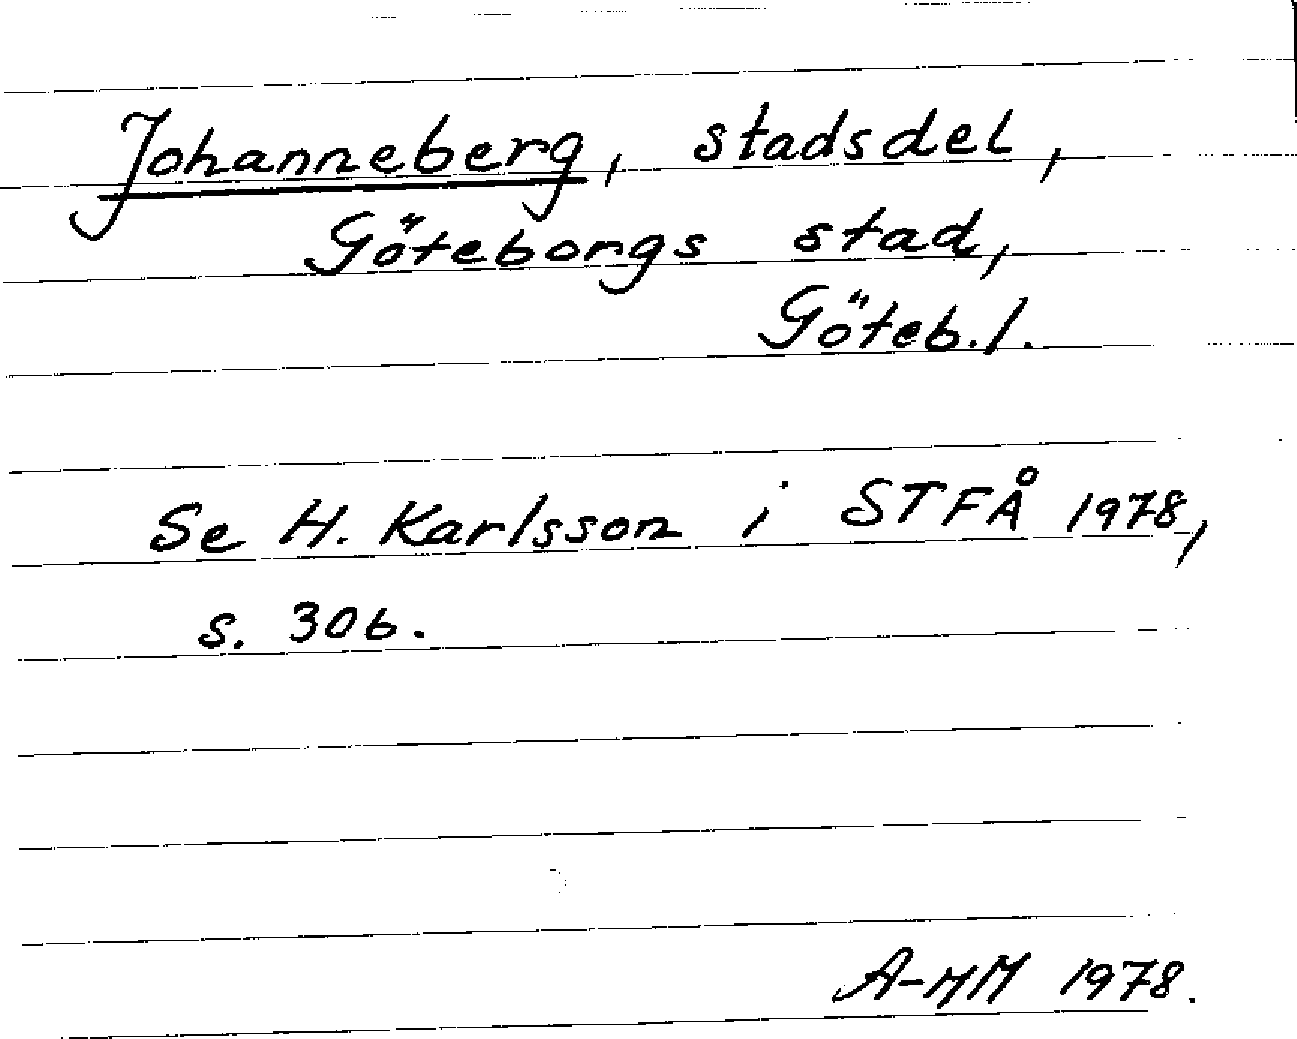 Johanneberg, stadsdel,
Göteborgs stad,
Göteb.l.
Se H. Karlsson i STFÅ 1978,
s. 306.
A-MM 1978.